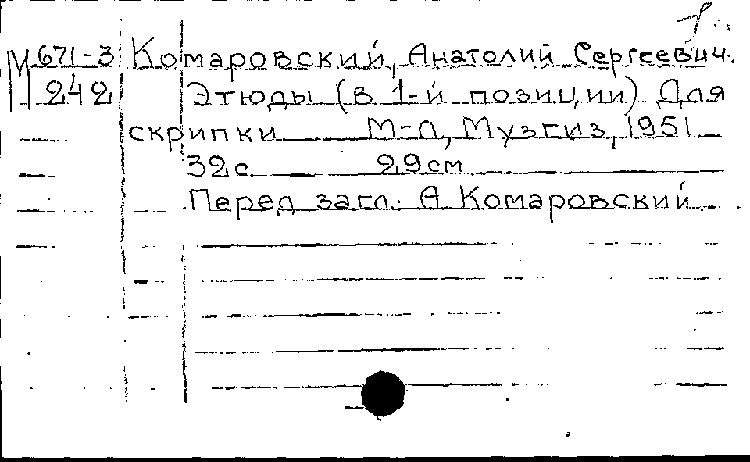 М 671-3 Комаровский, Анатолий Сергеевич.
242 Этюды (в 1-й позиции) Для
скрипки М-Л, Музгиз, 1951
32 с 29 см
Перед загл.: А. Комаровский